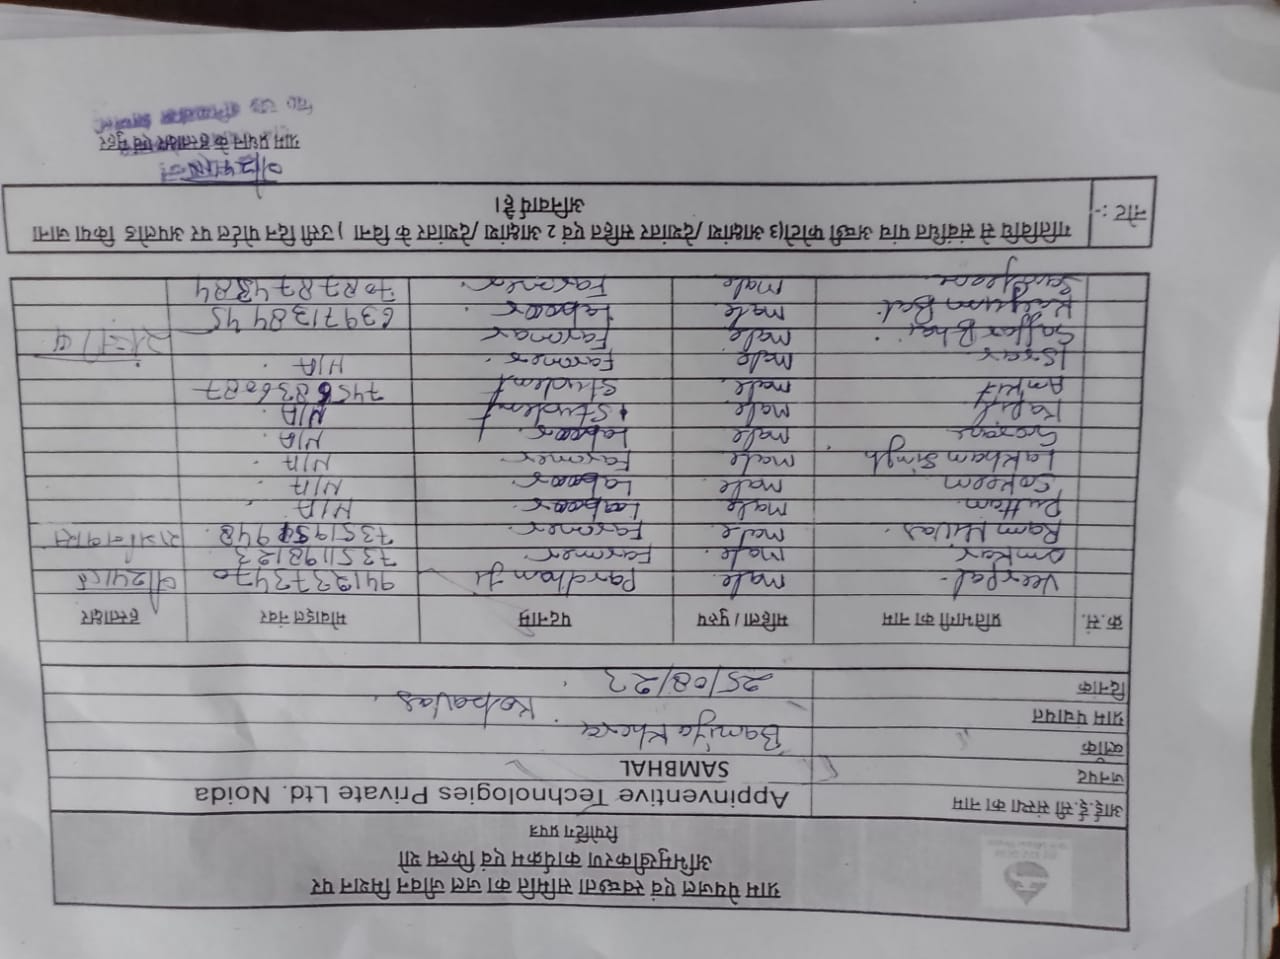 ग्राम पेयजल एवं स्वच्छता समिति का जल जीवन मिशन पर
अभिमुखीकरण कार्यक्रम एवं फिल्म शो
रिपोर्टिंग प्रपत्र
आई.ई.सी संस्था का नाम Appinventive Technologies Private Ltd. Noida
जनपद SAMBHAL
ब्लॉक Baniya Khera
ग्राम पंचायत
दिनांक 25/08/23
क्र.सं. प्रतिभागी का नाम महिला/पुरुष पदनाम मोबाइल नंबर हस्ताक्षर
Veerpal male Pardhan Ji 9412373470
Omkar male Farmer 7351198123
Ram Niwas male Farmer रामनिवास
male Labour N/A
male Labour N/A
Lakham Singh male Farmer N/A
male Labour N/A
Kapil male Student N/A
Ankit male Student 7456836087
Israr male Farmer N/A
male Farmar
male Labour 6397138445
male Farmer
नोट :- गतिविधि से संबंधित पांच अच्छी फोटो(3 आक्षांश/देशांतर सहित एवं 2 आक्षांश/देशांतर के बिना) उसी दिन पोर्टल पर अपलोड किया जाना
अनिवार्य है।
ग्राम प्रधान के हस्ताक्षर एवं मुहर